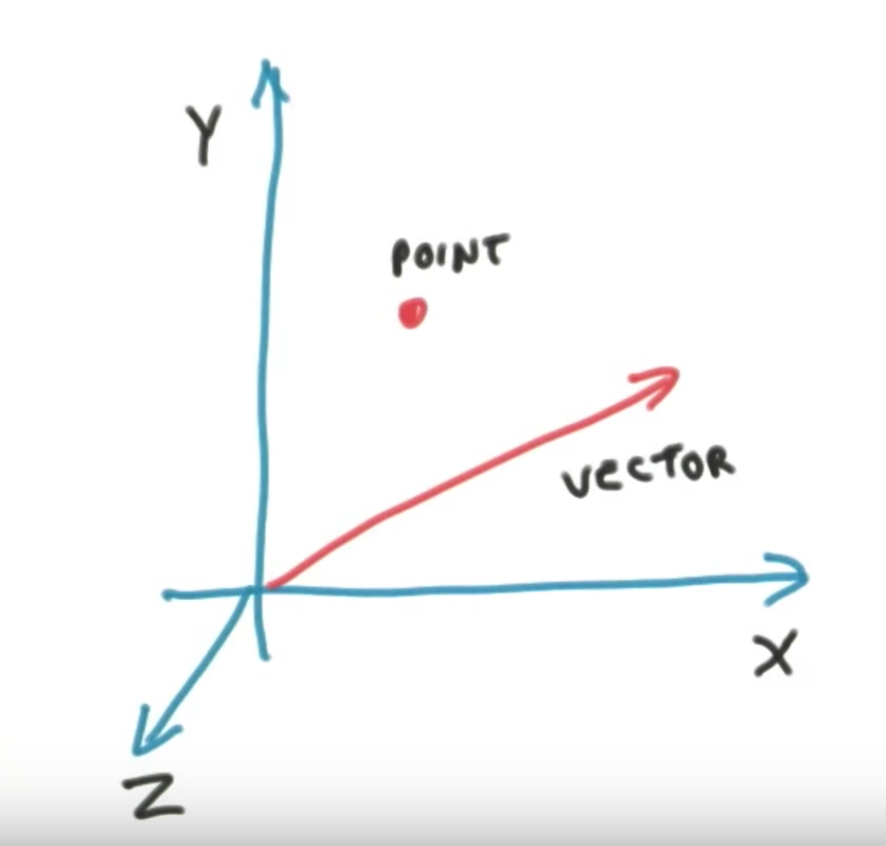 Y
POINT
VECTOR
X
Z